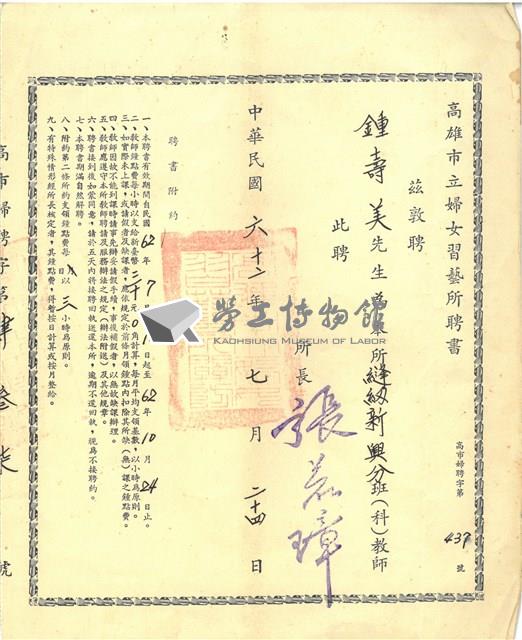 高雄市立婦女習藝所聘書
高市婦聘字第 437 號
茲敦聘
鍾壽美先生為本所縫紉新興分班(科)教師
此聘
所長 張
中華民國 六十二 年 七 月 二十四 日
聘書附約
一、本聘書有效期間自民國 62 年 7 月 日起至 62 年 10 月 24 日止。
二、教師鐘點費每小時以支給新臺幣 三十元 0 角計算,每月平均支領基數,以小時為原則。
三、如實際未上課,或請假者及缺課者,應依規定於前條月領鐘點內扣除其所缺(無)課之鐘點費。
四、教師因故不能到課時請事先辦妥請假手續,覓復補假者,以無故缺課辦理。
五、教師應遵守本所教師聘請及服務辦法之規定(辦法附送)及其他規章。
六、聘書接到後如蒙同意,請於五天內將接聘回執送還本所,逾期不還回執,視為不接聘約。
七、本聘書期滿自然解聘。
八、附約第二條所約支領鐘點費每 日以 三 小時為原則。
九、有特殊情形經所長核定者,其鐘點費,得暫按日計算或按月整給。
高市婦聘字第 肆 叁 柒 號
勞工博物館
KAOHSIUNG MUSEUM OF LABOR